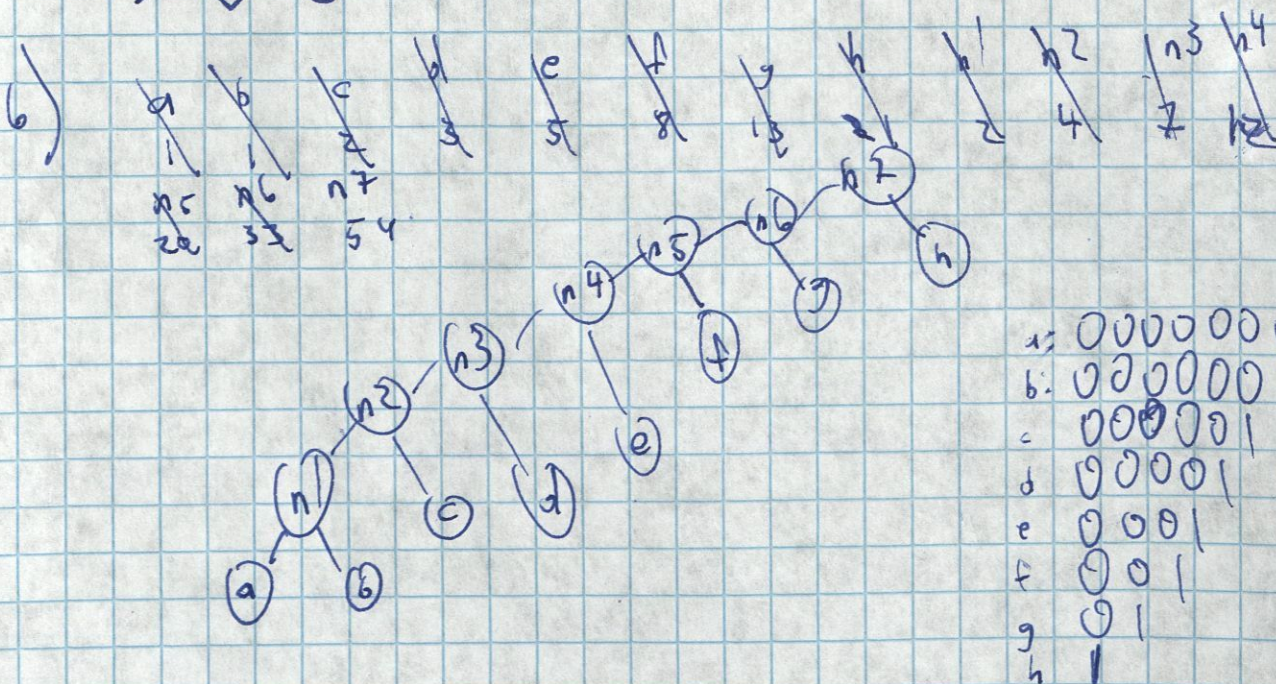 6)
a b c d e f g h n1 n2 n3 n4
1 1 2 3 5 8 13 21 2 4 7 12
n5 n6 n7
20 33 54
n7
n6 h
n5 g
n4 f
n3 e
n2 d
n1 c
a b
a: 000000
b: 000000
c 000001
d 00001
e 0001
f 001
g 01
h 1